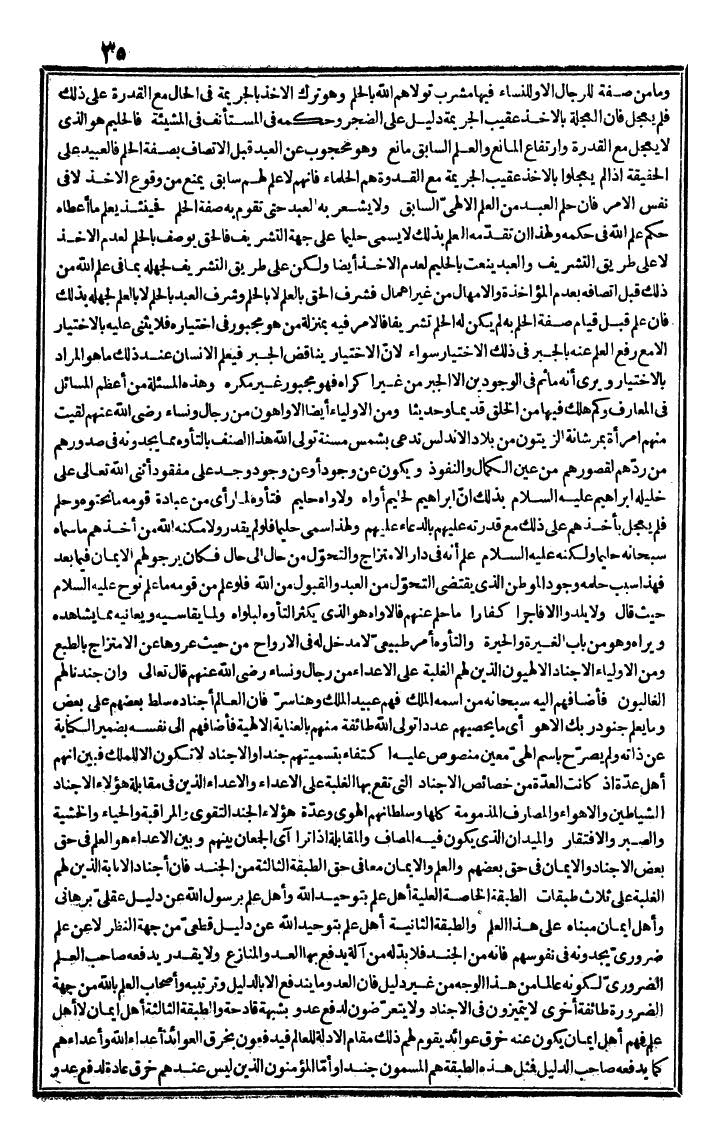 ٣٥
وما من صفة للرجال الا وللنساء فيها مشرب تولاهم الله بالحلم وهو ترك الاخذ بالجريمة فى الحال مع القدرة على ذلك
فلم يعجل فان العجلة بالاخذ عقيب الجريمة دليل على الضجر وحكمه فى المستأنف فى المشيئة فالحليم هو الذى
لا يعجل مع القدرة وارتفاع المانع والعلم السابق مانع وهو محجوب عن العبد قبل الاتصاف بصفة الحلم فالعبيد على
الحقيقة اذا لم يعجلوا بالاخذ عقيب الجريمة مع القدرة هم الحلماء فانهم لا علم لهم سابق يمنع من وقوع الاخذ لا فى
نفس الامر فان حلم العبد من العلم الالهىّ السابق ولا يشعر به العبد حتى تقوم به صفة الحلم فحينئذ يعلم ما أعطاه
حكم علم الله فى حكمه ولهذا ان تقدّمه العلم بذلك لا يسمى حليما على جهة التشريف فالحق يوصف بالحلم لعدم الاخذ
لا على طريق التشريف والعبد ينعت بالحليم لعدم الاخذ أيضا ولكن على طريق التشريف لجهله بما فى علم الله من
ذلك قبل اتصافه بعدم المؤاخذة والامهال من غير اهمال فشرف الحق بالعلم لا بالحلم وشرف العبد بالحلم لا بالعلم لجهله بذلك
فان علم قبل قيام صفة الحلم به لم يكن له الحلم تشريفا فالامر فيه بمنزلة من هو مجبور فى اختياره فلا يثنى عليه بالاختيار
الا مع رفع العلم عنه بالجبر فى ذلك الاختيار سواء لانّ الاختيار يناقض الجبر فيعلم الانسان عند ذلك ما هو المراد
بالاختيار ويرى أنه ما ثم فى الوجودين الا الجبر من غير اكراه فهو مجبور غير مكره وهذه المسئلة من أعظم المسائل
فى المعارف وكم هلك فيها من الخلق قديما وحديثا ومن الاولياء أيضا الاوّاهون من رجال ونساء رضى الله عنهم لقيت
منهم امرأة بمرشانة الزيتون من بلاد الاندلس تدعى بشمس مسنة تولى الله هذا الصنف بالتأوه مما يجدونه فى صدورهم
من ردّهم لقصورهم من عين الكمال والنفوذ ويكون عن وجود أو عن وجود وجد على مفقود أثنى الله تعالى على
خليله ابراهيم عليه السلام بذلك انّ ابراهيم لحليم أواه ولاواه حليم فتأوه لما رأى من عبادة قومه ما نحتوه وحلم
فلم يعجل بأخذهم على ذلك مع قدرته عليهم بالدعاء عليهم ولهذا سمى حليما فلو لم يقدر ولا مكنه الله من أخذهم ما سماه
سبحانه حليما ولكنه عليه السلام علم أنه فى دار الامتزاج والتحوّل من حال الى حال فكان يرجو لهم الايمان فيما بعد
فهذا سبب حلمه وجود الموطن الذى يقتضى التحوّل من العبد والقبول من الله فلو علم من قومه ما علم نوح عليه السلام
حيث قال ولا يلدوا الا فاجرا كفارا ما حلم عنهم فالاواه هو الذى يكثر التأوه لبلواه ولما يقاسيه ويعانيه مما يشاهده
ويراه وهو من باب الغيرة والحيرة والتأوه أمر طبيعىّ لا مدخل له فى الارواح من حيث عروها عن الامتزاج بالطبع
ومن الاولياء الاجناد الالهيون الذين لهم الغلبة على الاعداء من رجال ونساء رضى الله عنهم قال تعالى وان جندنا لهم
الغالبون فأضافهم اليه سبحانه من اسمه الملك فهم عبيد الملك وهنا سرّ فان العالم أجناده سلط بعضهم على بعض
وما يعلم جنود ربك الا هو أى ما يحصيهم عددا تولى الله طائفة منهم بالعناية الالهية فأضافهم الى نفسه بضمير الكناية
عن ذاته ولم يصرّح باسم الهىّ معين منصوص عليه اكتفاء بتسميتهم جندا والاجناد لا تكون الا للملك فبين انهم
أهل عدّة اذ كانت العدّة من خصائص الاجناد التى تقع بها الغلبة على الاعداء والاعداء الذين فى مقابلة هؤلاء الاجناد
الشياطين والاهواء والمصارف المذمومة كلها وسلطانهم الهوى وعدّة هؤلاء الجند التقوى والمراقبة والحياء والخشية
والصبر والافتقار والميدان الذى يكون فيه المصاف والمقابلة اذا تراآى الجمعان بينهم وبين الاعداء هو العلم فى حق
بعض الاجناد والايمان فى حق بعضهم والعلم والايمان معا فى حق الطبقة الثالثة من الجند فان أجناد الانابة الذين لهم
الغلبة على ثلاث طبقات الطبقة الخاصة العلية أهل علم بتوحيد الله وأهل علم برسول الله عن دليل عقلىّ برهانى
وأهل ايمان مبناه على هذا العلم والطبقة الثانية أهل علم بتوحيد الله عن دليل قطعىّ من جهة النظر لا عن علم
ضرورىّ يجدونه فى نفوسهم فانه من الجند فلا بدّ له من آلة يدفع بها العدو والمنازع ولا يقدر يدفعه صاحب العلم
الضرورىّ لكونه عالما من هذا الوجه من غير دليل فان العدو ما يندفع الا بالدليل وترتيبه وأصحاب العلم بالله من جهة
الضرورة طائفة أخرى لا يتميزون فى الاجناد ولا يتعرّضون لدفع عدو بشبهة قادحة والطبقة الثالثة أهل ايمان لا أهل
علم فهم أهل ايمان يكون عنه خرق عوائد يقوم لهم ذلك مقام الادلة للعالم فيدفعون بخرق العوائد أعداء الله وأعداءهم
كما يدفعه صاحب الدليل فمثل هذه الطبقة هم المسمون جندا وأمّا المؤمنون الذين ليس عندهم خرق عادة لدفع عدو